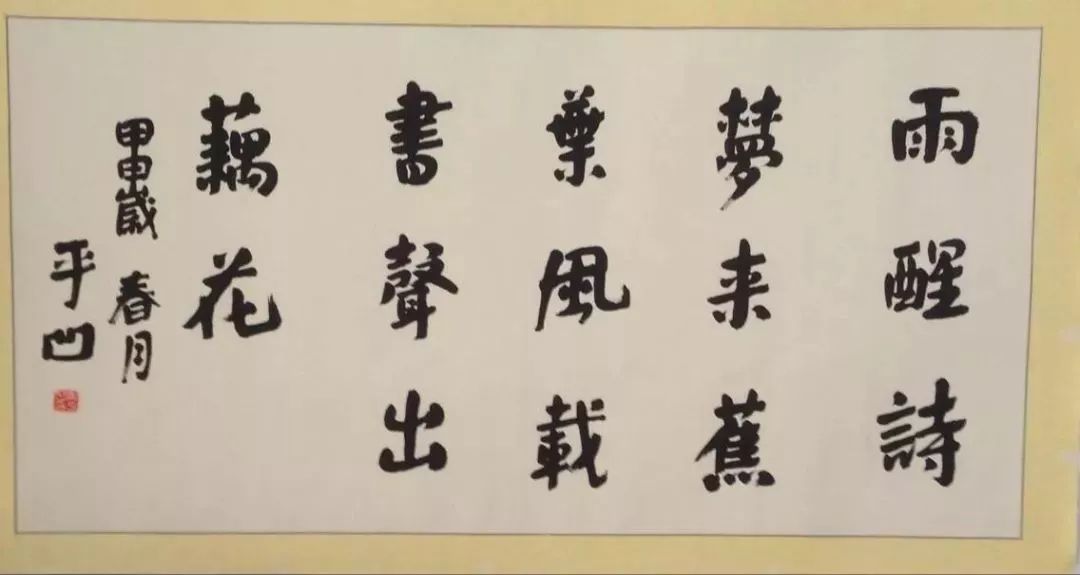 雨醒詩
夢来蕉
葉風載
書聲出
藕花
甲申歲春月
平凹